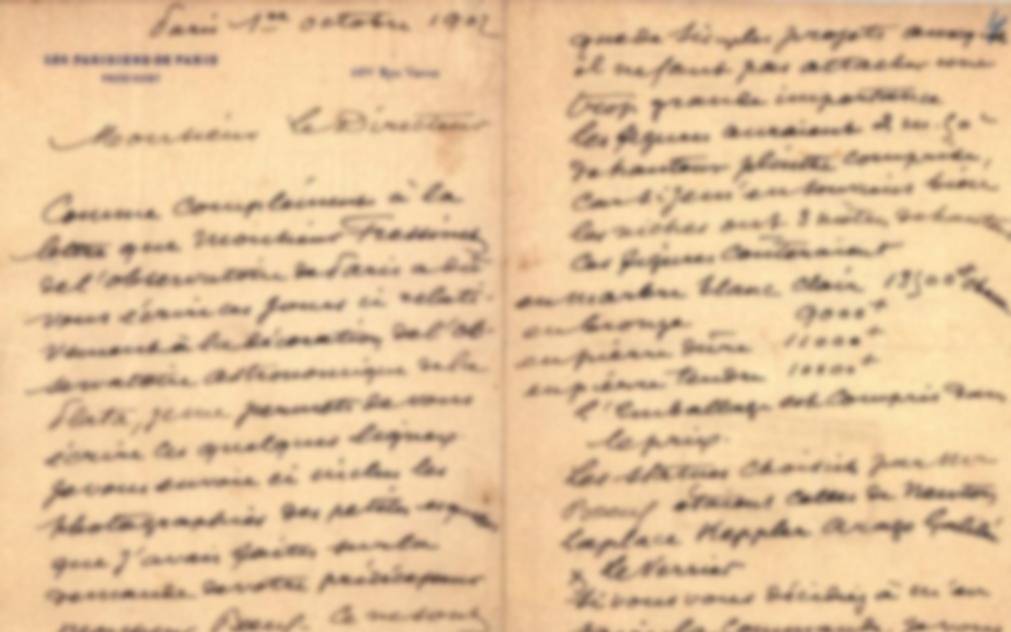 Paris 1er octobre 190
LES PARISIENS DE PARIS
Monsieur le Directeur
Comme complément à la
lettre que Monsieur
de l'observatoire de Paris a dû
vous écrire ces jours ci relati-
vement à la décoration de l'ob-
servatoire astronomique de la
Plata, je me permets de vous
écrire ces quelques lignes
Je vous envoie ci inclus les
photographies des petites
que j'avais faites sur la
demande de votre prédécesseur
Monsieur Beuf. Ce ne sont
que de simples projets auxquels
il ne faut pas attacher une
trop grande importance
les figures auraient 2 m.
de hauteur plinthe comprise,
car si je m'en souviens bien
les niches ont 3 mètres de haut
Ces figures couteraient
en marbre blanc clair
en bronze 9000
en pierre dure 11000
en pierre tendre 10000
l'emballage est compris dans
le prix.
Les statues choisies par Mr
Beuf étaient celles de Newton
Laplace Keppler Arago Galilé
& Le Verrier
Si vous vous décidez à m'en
la commande